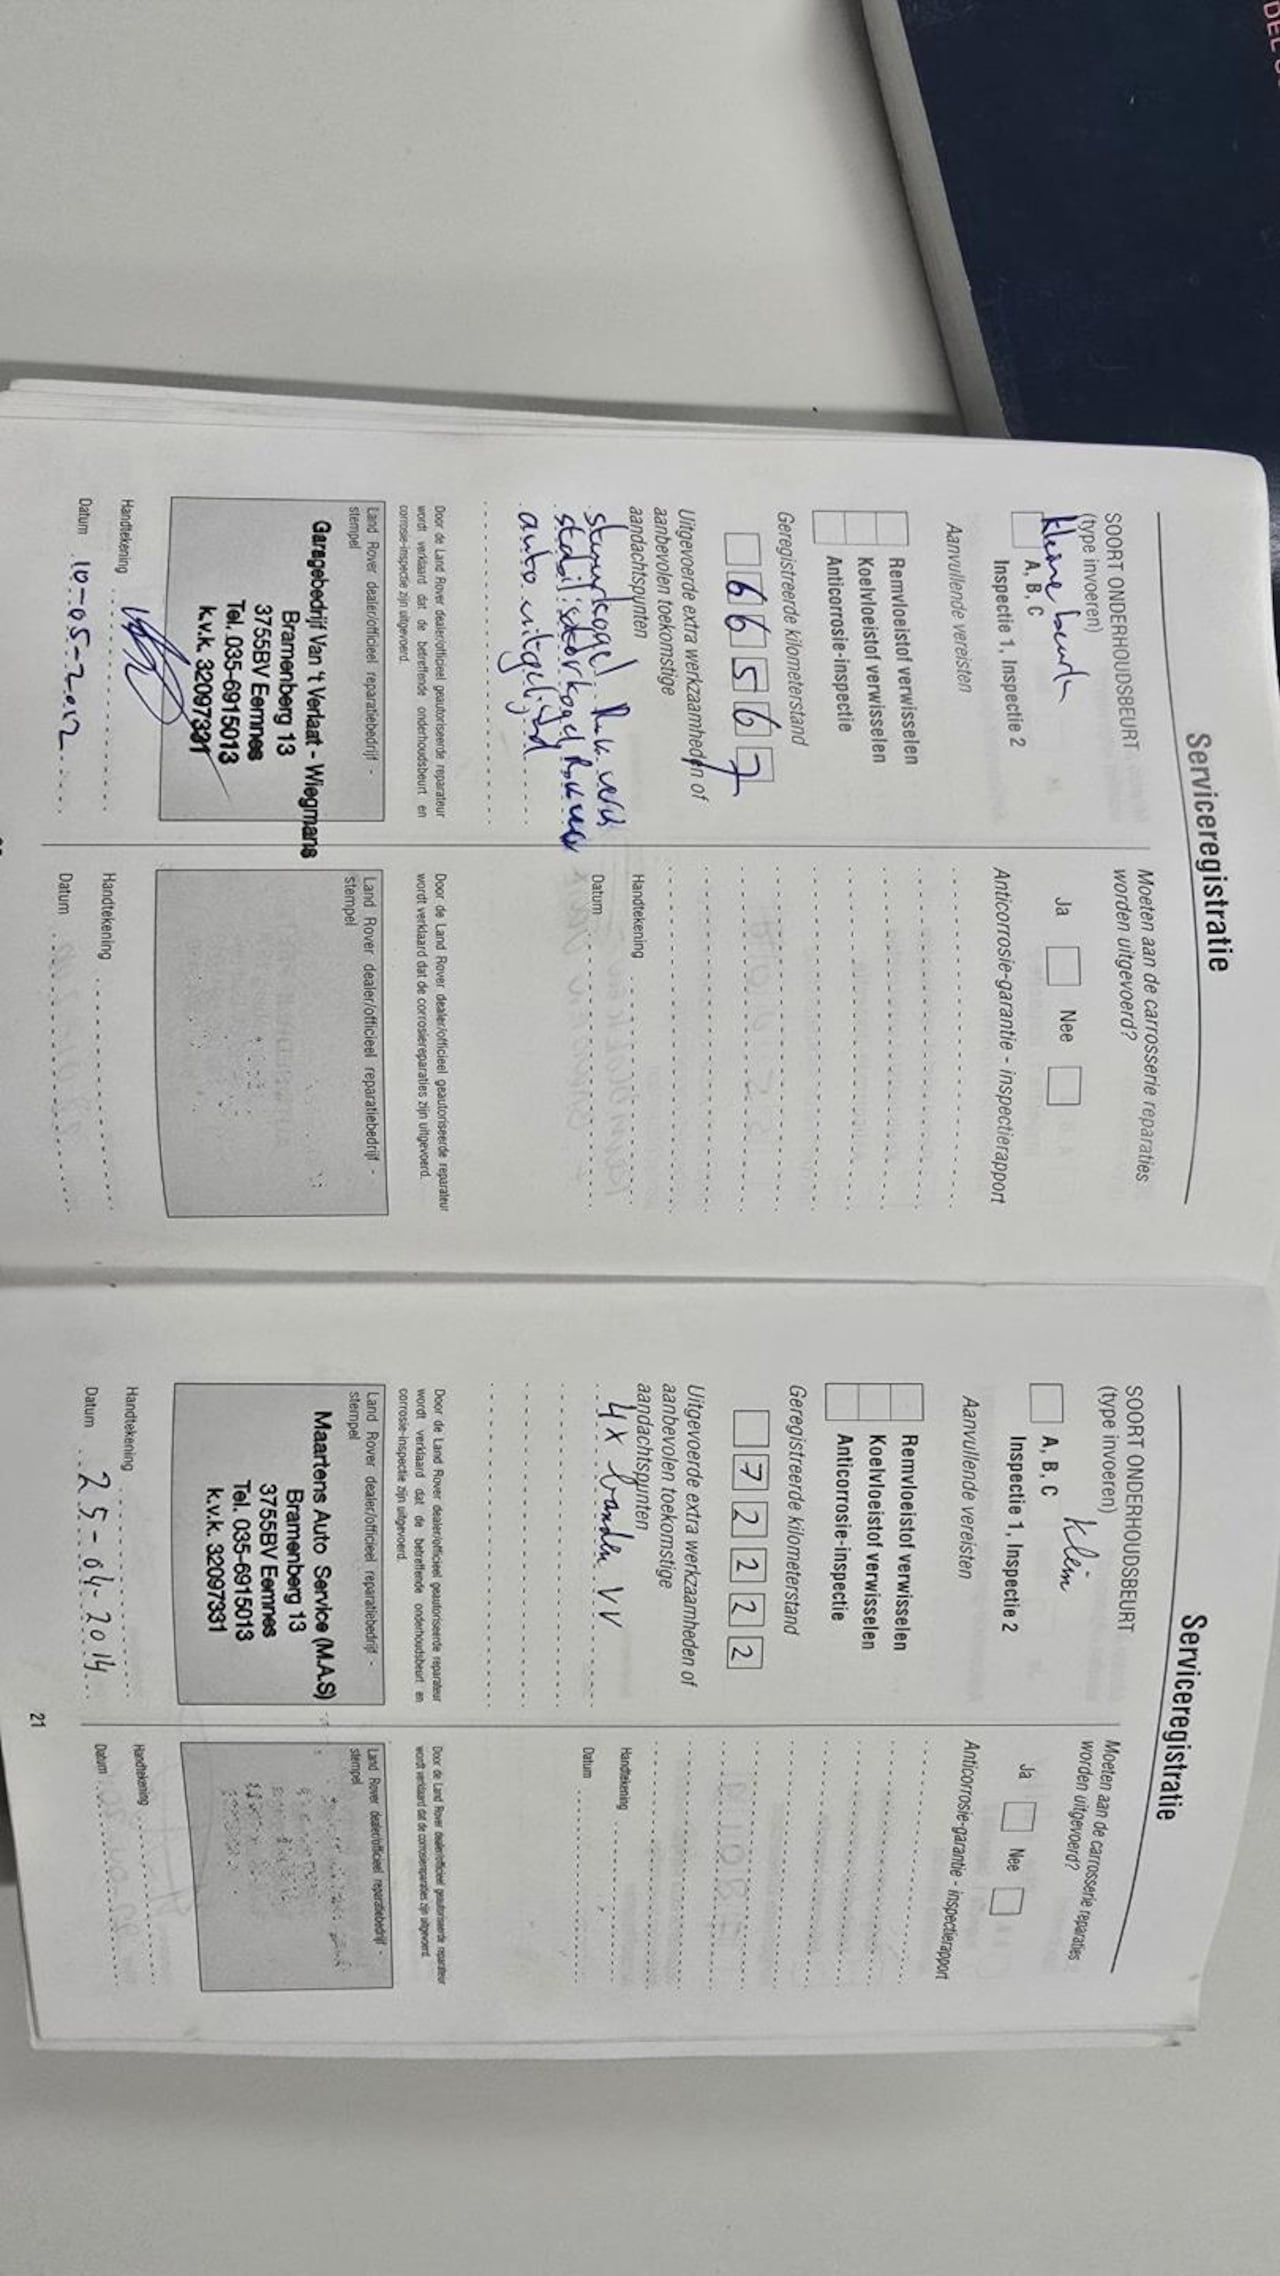 Serviceregistratie
SOORT ONDERHOUDSBEURT
(type invoeren)
kleine beurt
A, B, C
Inspectie 1, Inspectie 2
Aanvullende vereisten
Remvloeistof verwisselen
Koelvloeistof verwisselen
Anticorrosie-inspectie
Geregistreerde kilometerstand
66567
Uitgevoerde extra werkzaamheden of
aanbevolen toekomstige
aandachtspunten
stuurkogel
stabilisatorkogel
auto uitgelijnd
Door de Land Rover dealer/officieel geautoriseerde reparateur
wordt verklaard dat de betreffende onderhoudsbeurt en
corrosie-inspectie zijn uitgevoerd.
Land Rover dealer/officieel reparatiebedrijf -
stempel
Garagebedrijf Van 't Verlaat - Wiegmans
Bramenberg 13
3755BV Eemnes
Tel. 035-6915013
k.v.k. 32097331
Handtekening
Datum 10-05-2012
Moeten aan de carrosserie reparaties
worden uitgevoerd?
Ja Nee
Anticorrosie-garantie - inspectierapport
Handtekening
Datum
Door de Land Rover dealer/officieel geautoriseerde reparateur
wordt verklaard dat de corrosiereparaties zijn uitgevoerd.
Land Rover dealer/officieel reparatiebedrijf -
stempel
Handtekening
Datum
Serviceregistratie
SOORT ONDERHOUDSBEURT
(type invoeren)
Klein
A, B, C
Inspectie 1, Inspectie 2
Aanvullende vereisten
Remvloeistof verwisselen
Koelvloeistof verwisselen
Anticorrosie-inspectie
Geregistreerde kilometerstand
72222
Uitgevoerde extra werkzaamheden of
aanbevolen toekomstige
aandachtspunten
4x banden VV
Door de Land Rover dealer/officieel geautoriseerde reparateur
wordt verklaard dat de betreffende onderhoudsbeurt en
corrosie-inspectie zijn uitgevoerd.
Land Rover dealer/officieel reparatiebedrijf -
stempel
Maartens Auto Service (M.A.S)
Bramenberg 13
3755BV Eemnes
Tel. 035-6915013
k.v.k. 32097331
Handtekening
Datum 25-04-2014
Moeten aan de carrosserie reparaties
worden uitgevoerd?
Ja Nee
Anticorrosie-garantie - inspectierapport
Handtekening
Datum
Door de Land Rover dealer/officieel geautoriseerde reparateur
wordt verklaard dat de corrosiereparaties zijn uitgevoerd.
Land Rover dealer/officieel reparatiebedrijf -
stempel
Handtekening
Datum
21